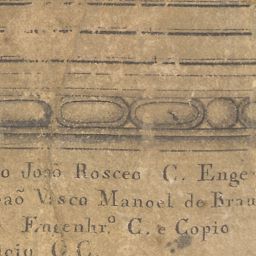 o João Rosceo C. Enge
oaõ Vasco Manoel de Brau
Engenhr.º C. e Copio
icio C C.